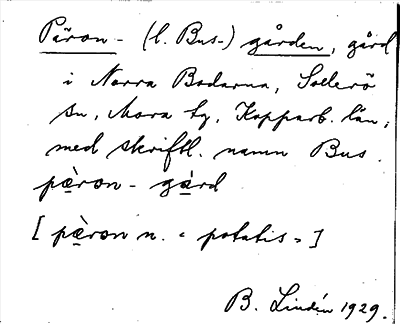 Päron- (l. Bus-) gården, gård
i Norra Bodarna, Sollerö
sn, Mora tg, Kopparb. län,
med skriftl. namn Bus.
pæ̀ron - gård
[ pæ̀ron n. "potatis" ]
B. Lindén 1929.